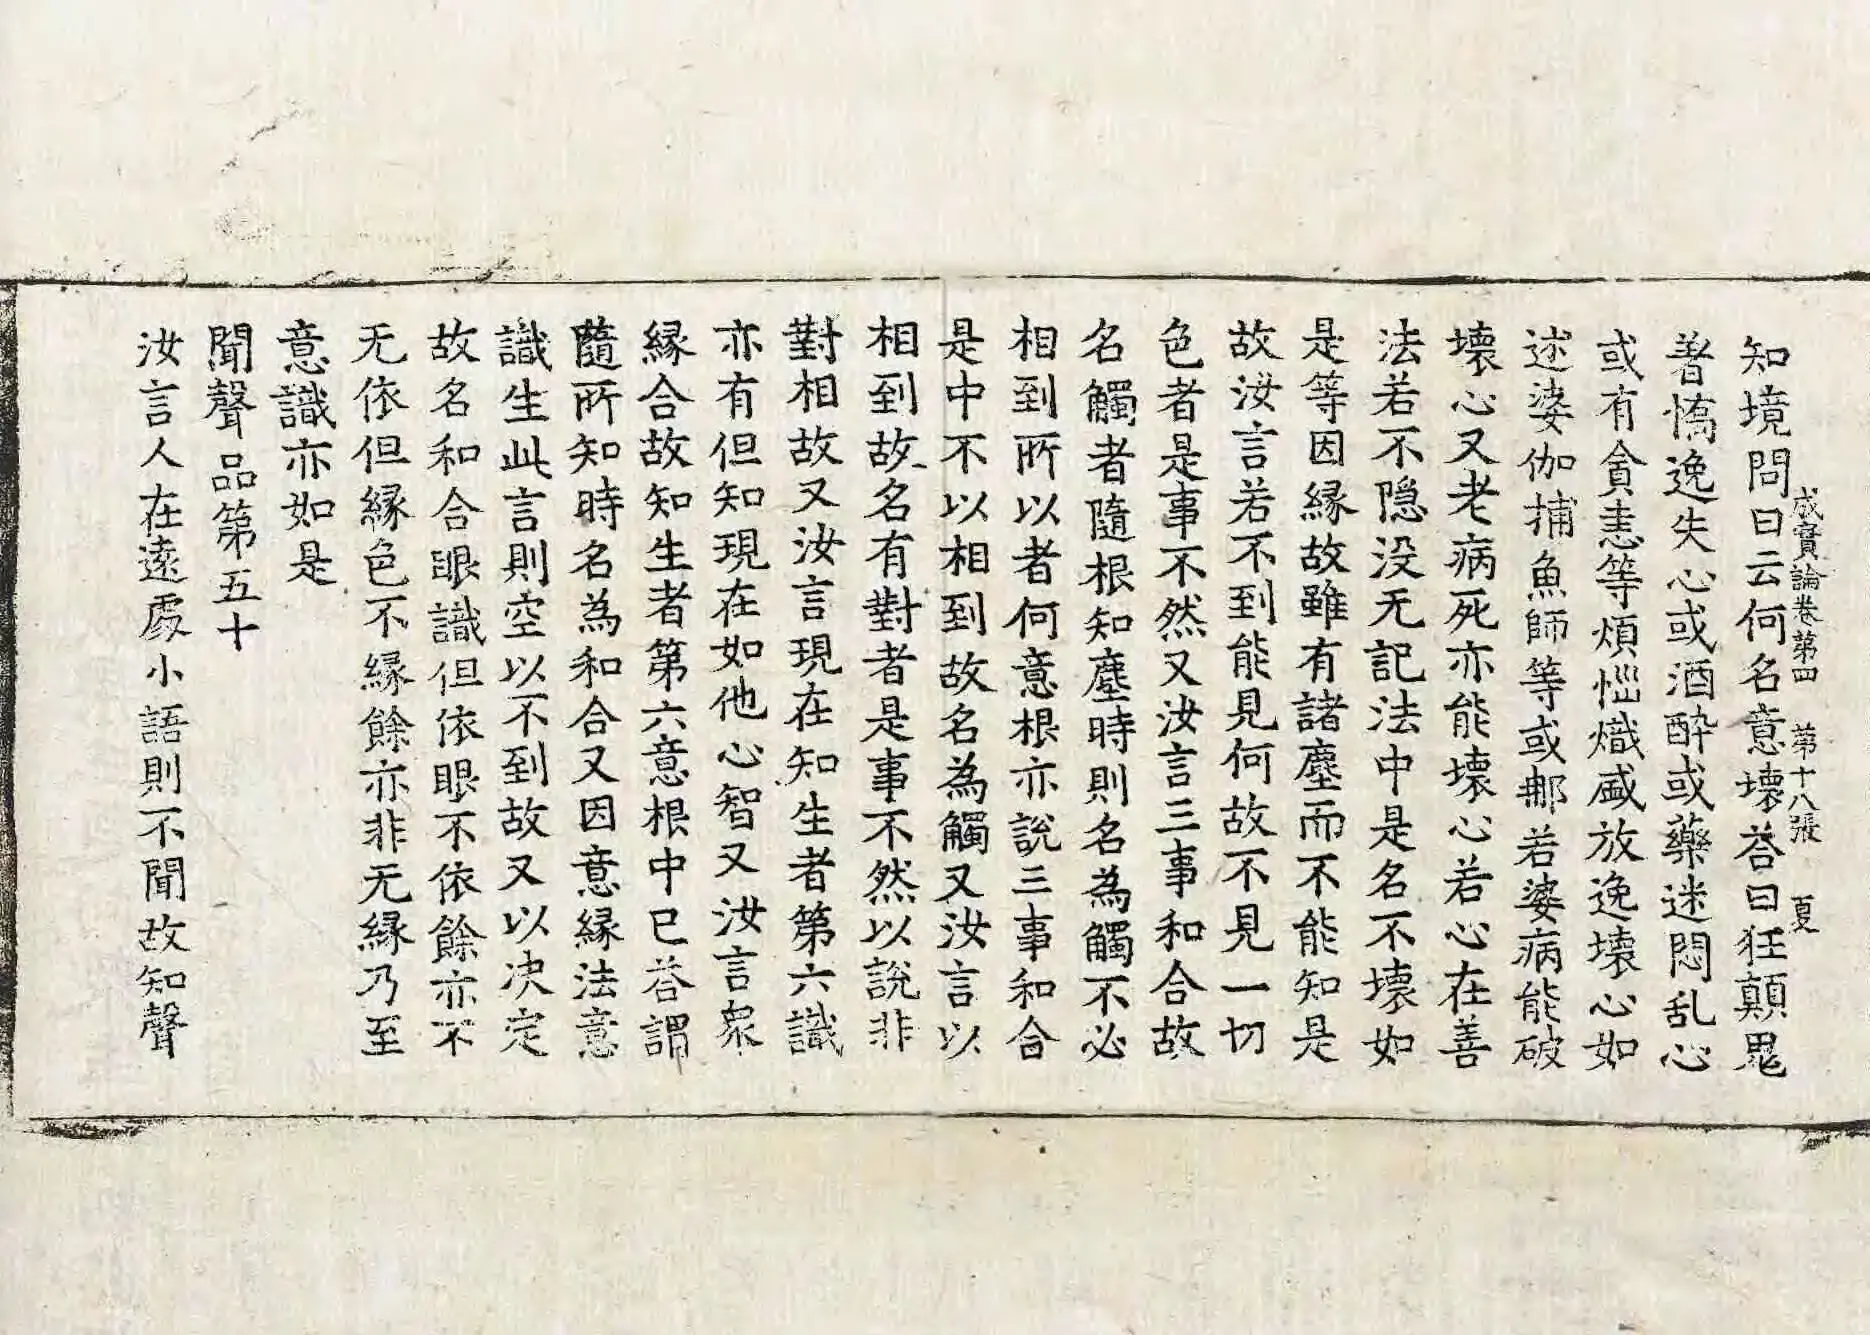 成實論卷第四 第十八張 夏
知境問曰云何名意壞荅曰狂顛鬼
著憍逸失心或酒醉或藥迷悶乱心
或有貪恚等煩惱熾盛放逸壞心如
述婆伽捕魚師等或那若婆病能破
壞心又老病死亦能壞心若心在善
法若不隠没无記法中是名不壞如
是等因縁故雖有諸塵而不能知是
故汝言若不到能見何故不見一切
色者是事不然又汝言三事和合故
名觸者隨根知塵時則名為觸不必
相到所以者何意根亦說三事和合
是中不以相到故名為觸又汝言以
相到故名有對者是事不然以說非
對相故又汝言現在知生者第六識
亦有但知現在如他心智又汝言衆
縁合故知生者第六意根中已荅謂
隨所知時名為和合又因意縁法意
識生此言則空以不到故又以决定
故名和合眼識但依眼不依餘亦不
无依但縁色不縁餘亦非无縁乃至
意識亦如是
聞聲品第五十
汝言人在遠處小語則不聞故知聲